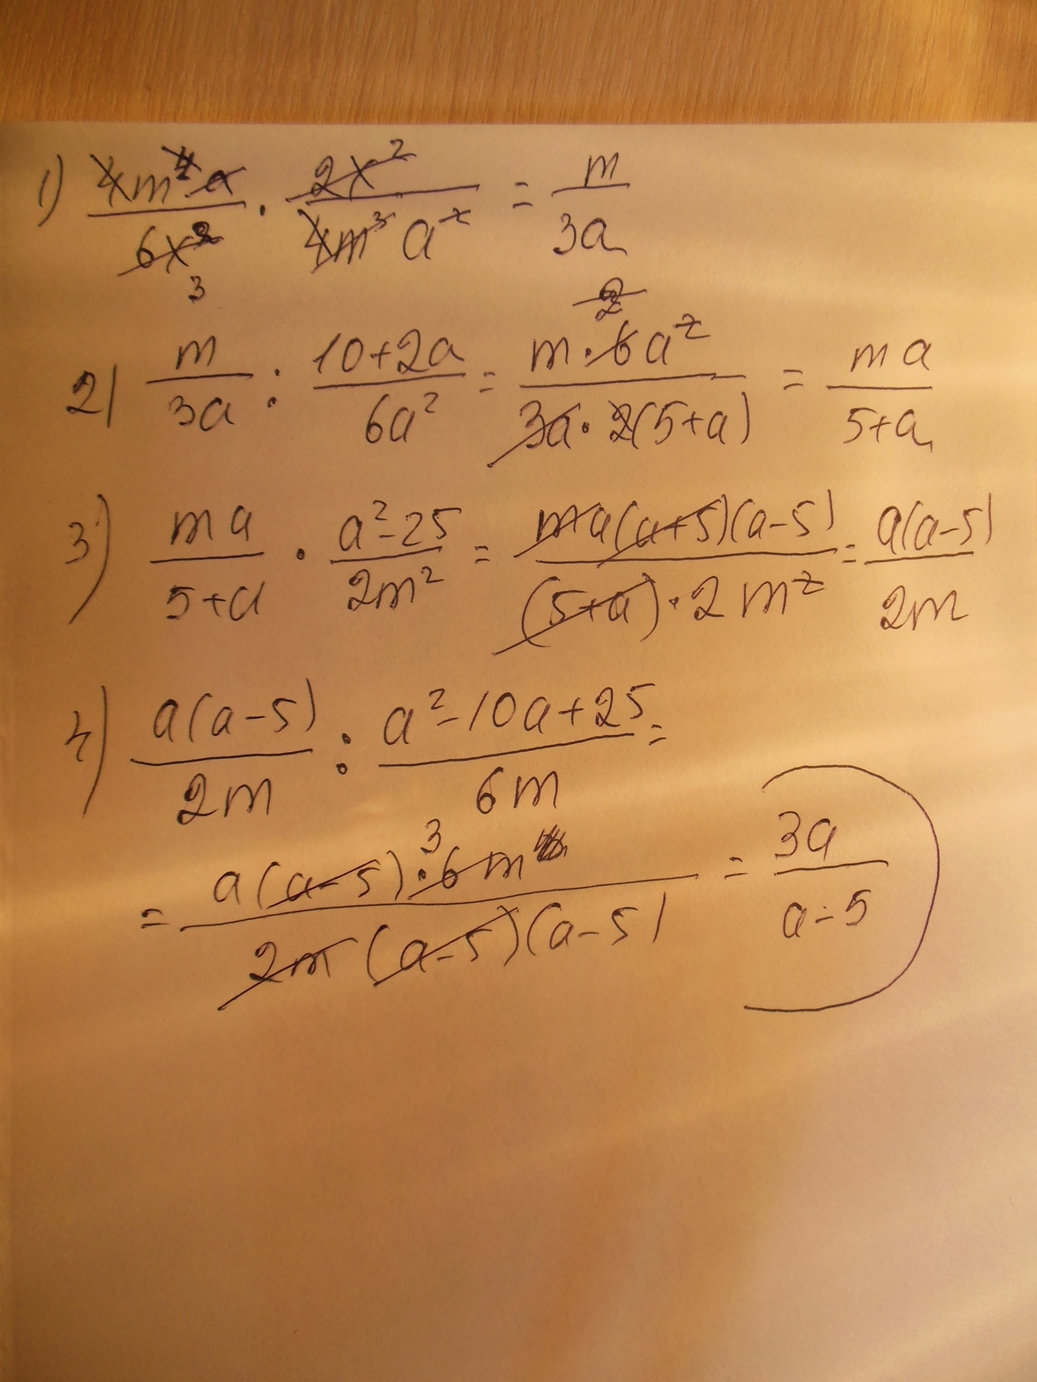 1) 4m⁴a/6x² · 2x²/4m³a² = m/3a
3
2
2) m/3a : 10+2a/6a² = m·6a²/3a·2(5+a) = ma/5+a
3) ma/5+a · a²-25/2m² = ma(a+5)(a-5)/(5+a)·2m² = a(a-5)/2m
4) a(a-5)/2m : a²-10a+25/6m =
3
= a(a-5)·6m/2m(a-5)(a-5) = 3a/a-5